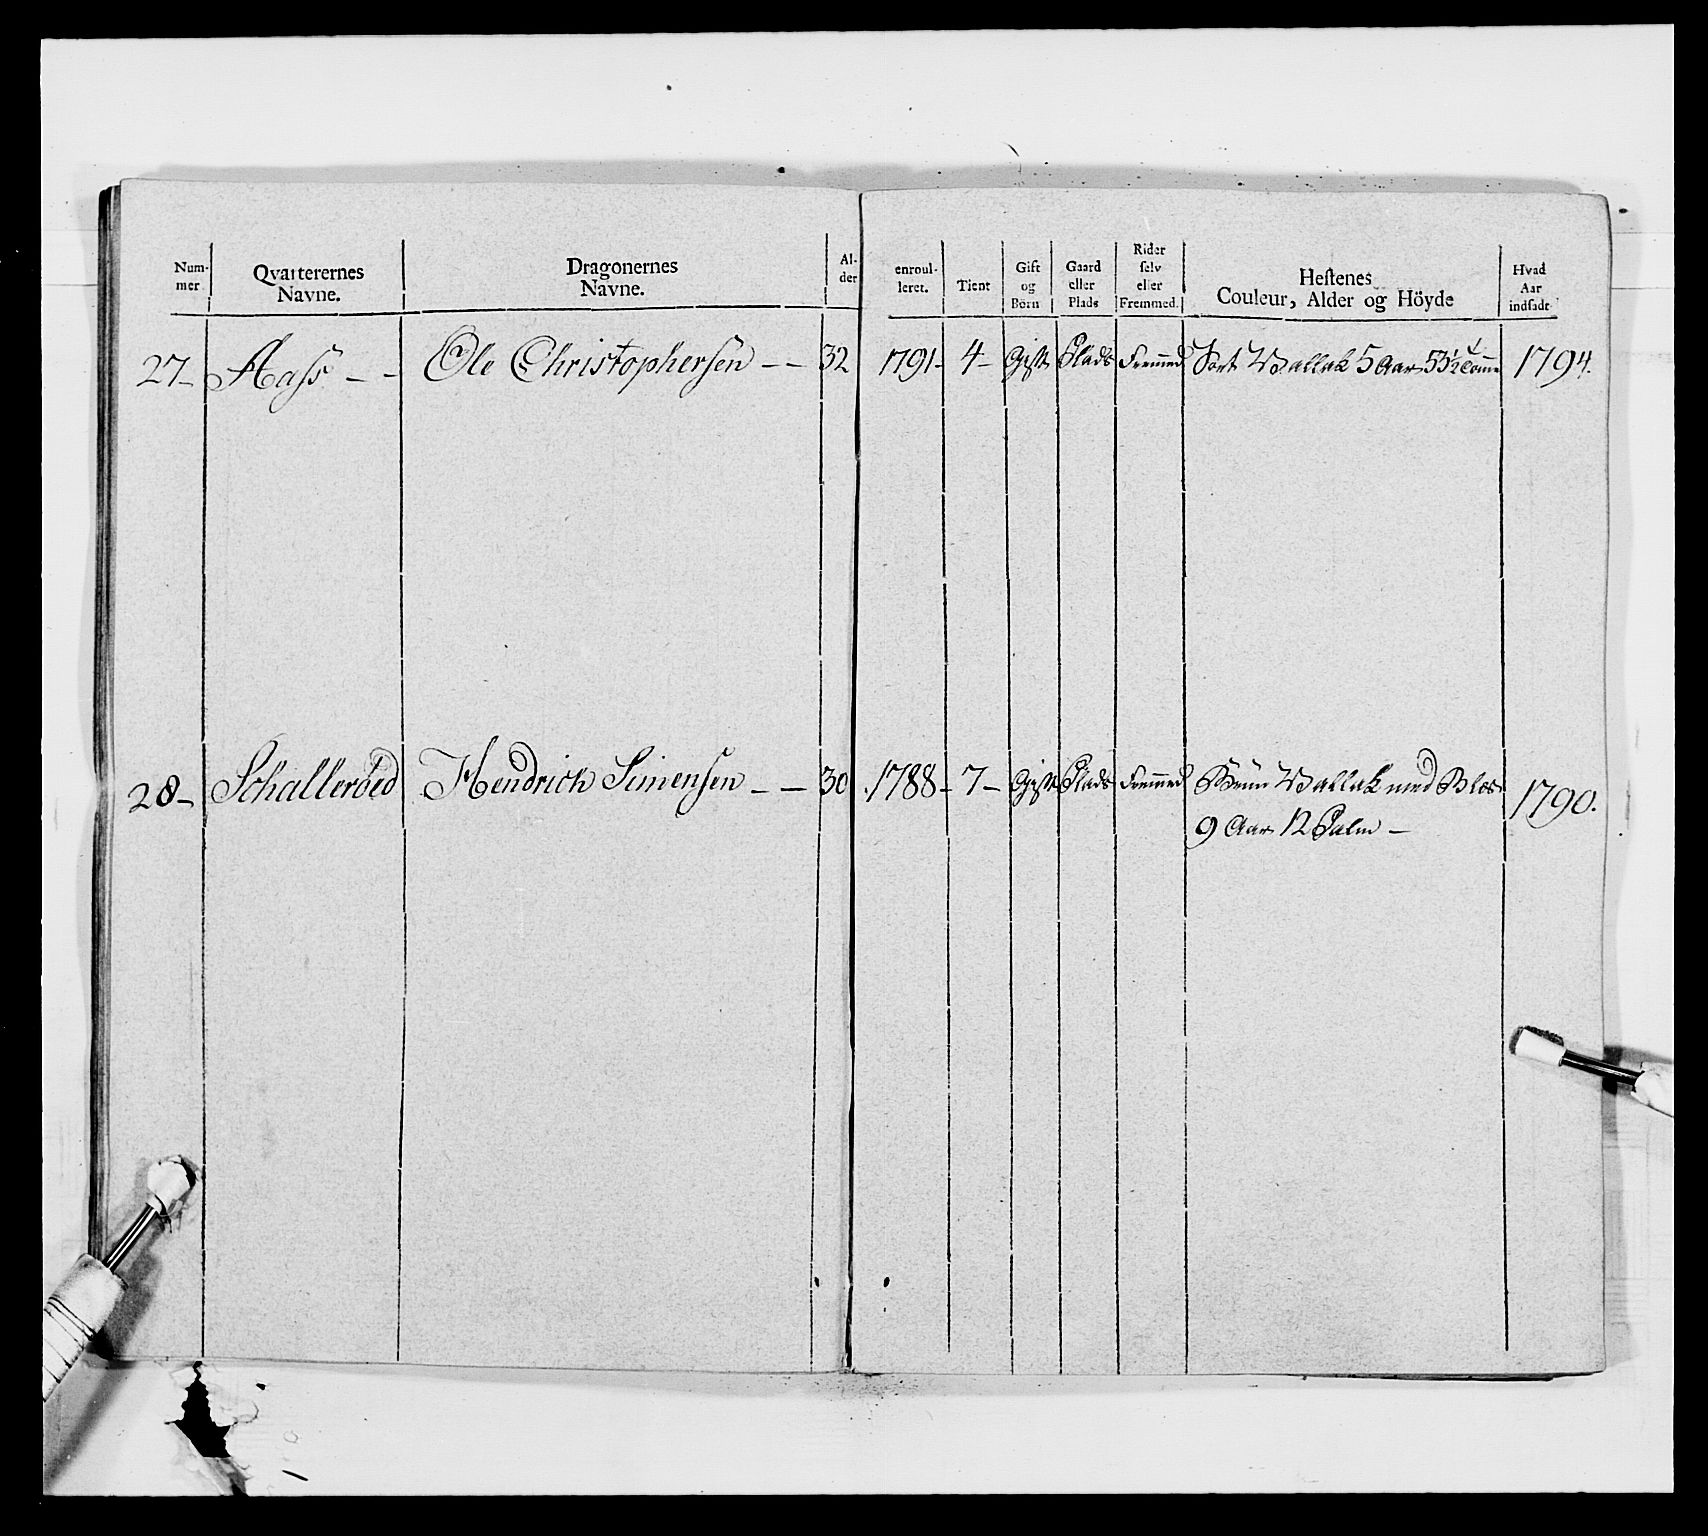 Num-
mer
Qvarterernes
Navne.
Dragonernes
Navne.
Al-
der
enroul-
leret.
Tient
Gift
og
Börn
Gaard
eller
Plads
Rider
selv
eller
Fremmed.
Hestenes
Couleur, Alder og Höyde
Hvad
Aar
indsadt
27 - Aass - - Ole Christophersen - - 32 1791 - 4 - Gift Plads Fremed Sort Vallak 5 Aar 53½ Tomme 1794.
28 - Schalleröed Hendrich Simensen - - 30 1788 - 7 - Gift Plads Fremed Brun Vallak med Blis 1790.
9 Aar 12 Palm -